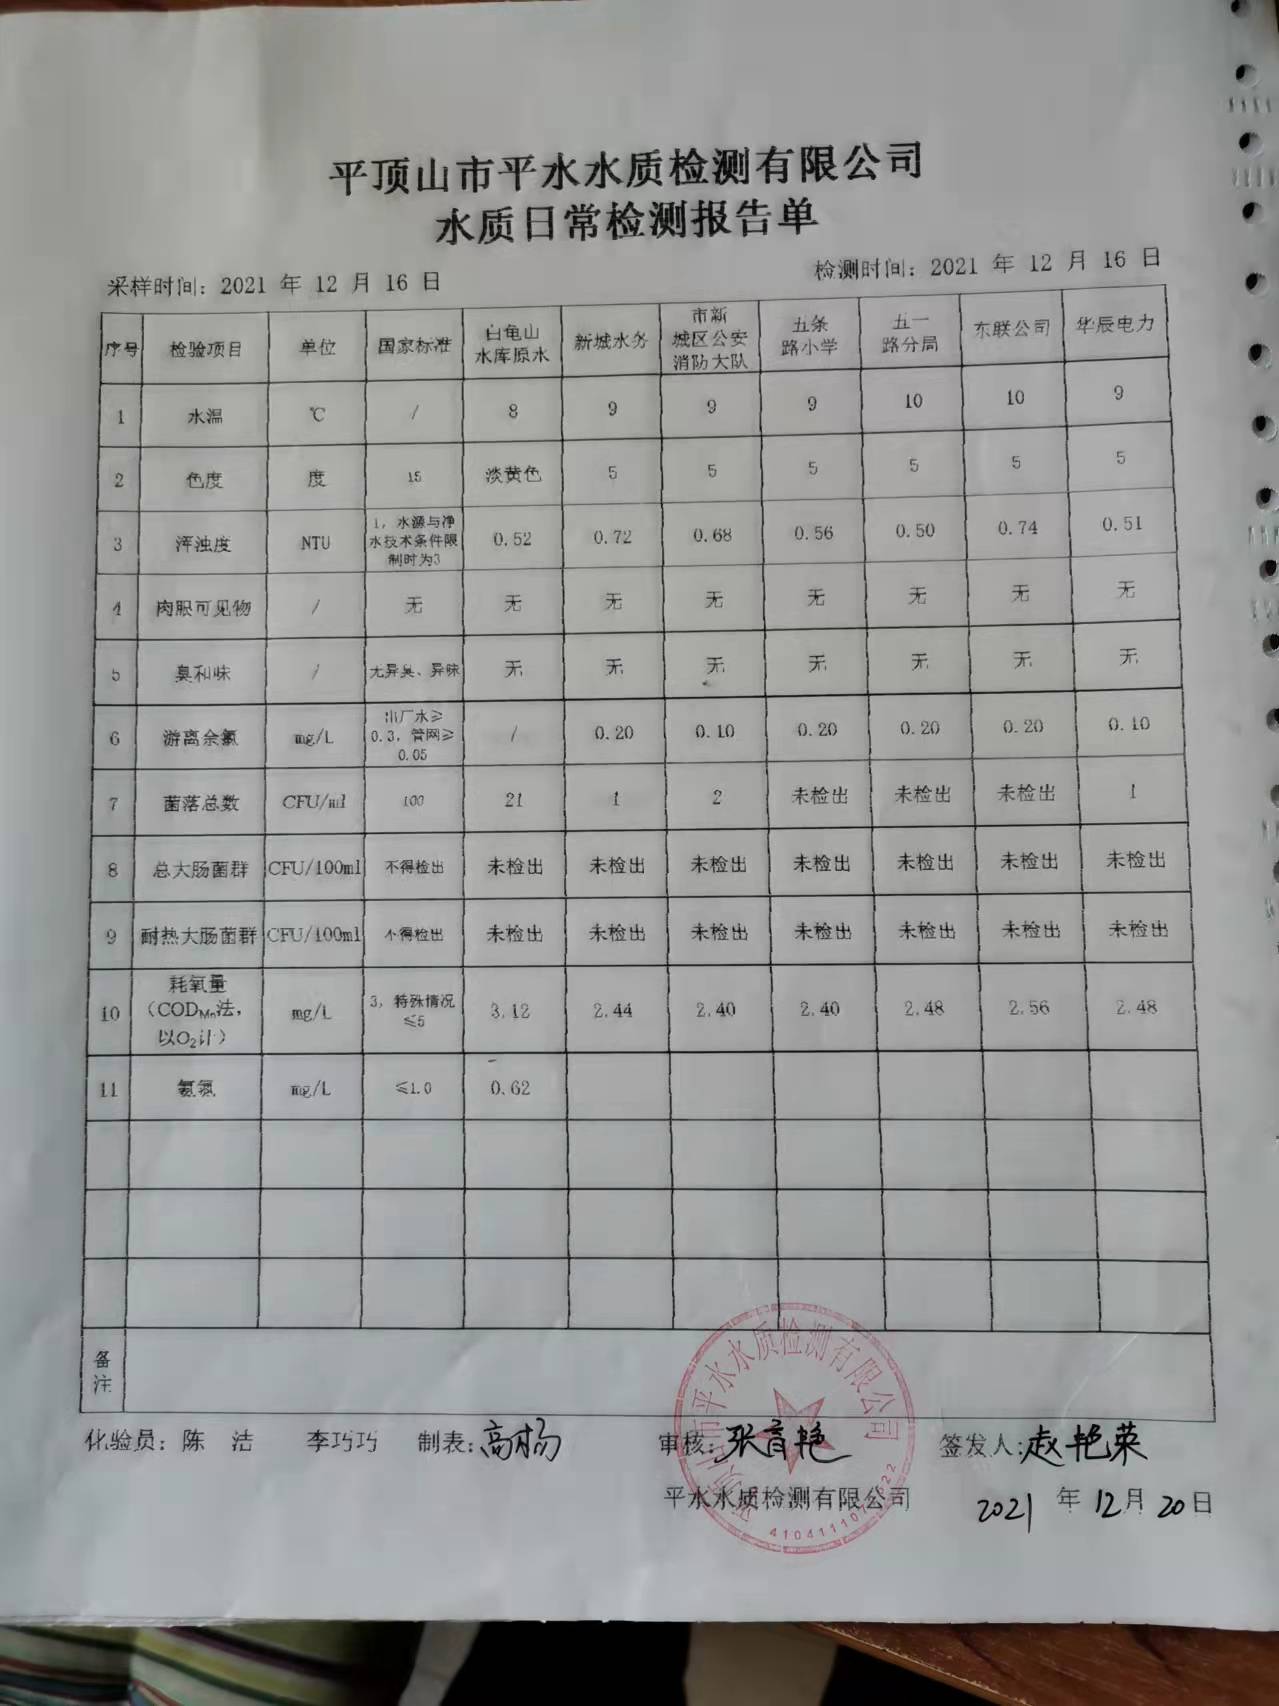 平顶山市平水水质检测有限公司
水质日常检测报告单
采样时间：2021 年 12 月 16 日 检测时间：2021 年 12 月 16 日
序号 检验项目 单位 国家标准 白龟山水库原水 新城水务 市新城区公安消防大队 五条路小学 五一路分局 东联公司 华辰电力
1 水温 ℃ / 8 9 9 9 10 10 9
2 色度 度 15 淡黄色 5 5 5 5 5 5
3 浑浊度 NTU 1，水源与净水技术条件限制时为3 0.52 0.72 0.68 0.56 0.50 0.74 0.51
4 肉眼可见物 / 无 无 无 无 无 无 无 无
5 臭和味 / 无异臭、异味 无 无 无 无 无 无 无
6 游离余氯 mg/L 出厂水≥0.3，管网≥0.05 / 0.20 0.10 0.20 0.20 0.20 0.10
7 菌落总数 CFU/ml 100 21 1 2 未检出 未检出 未检出 1
8 总大肠菌群 CFU/100ml 不得检出 未检出 未检出 未检出 未检出 未检出 未检出 未检出
9 耐热大肠菌群 CFU/100ml 不得检出 未检出 未检出 未检出 未检出 未检出 未检出 未检出
10 耗氧量（CODMn法，以O2计） mg/L 3，特殊情况≤5 3.12 2.44 2.40 2.40 2.48 2.56 2.48
11 氨氮 mg/L ≤1.0 0.62
备注
化验员：陈 洁 李巧巧 制表：高杨 审核：张育艳 签发人：赵艳荣
平水水质检测有限公司
2021 年 12月 20日
市平水水质检测有限公司